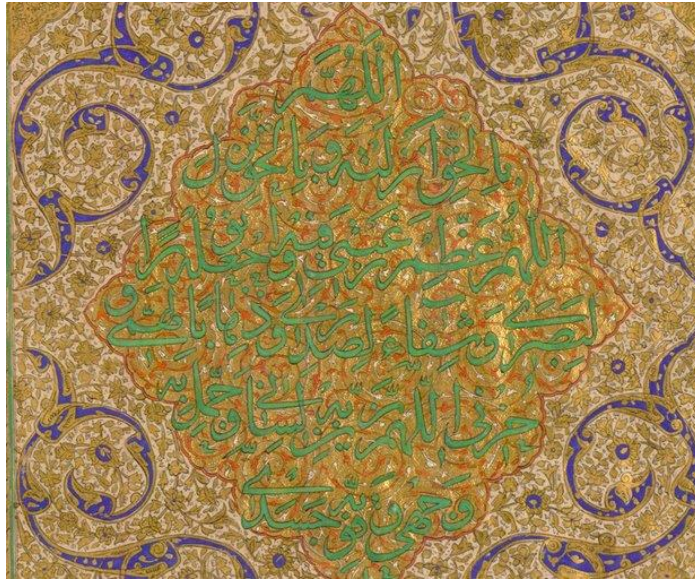 اللهم
بالحق انزلته وبالحق نزل
اللهم عظم رغبتى فيه واجعله نورا
لبصرى وشفاء لصدرى و
حزنى اللهم زين به لسانى وجمل به
وجهى وقو به جسدى